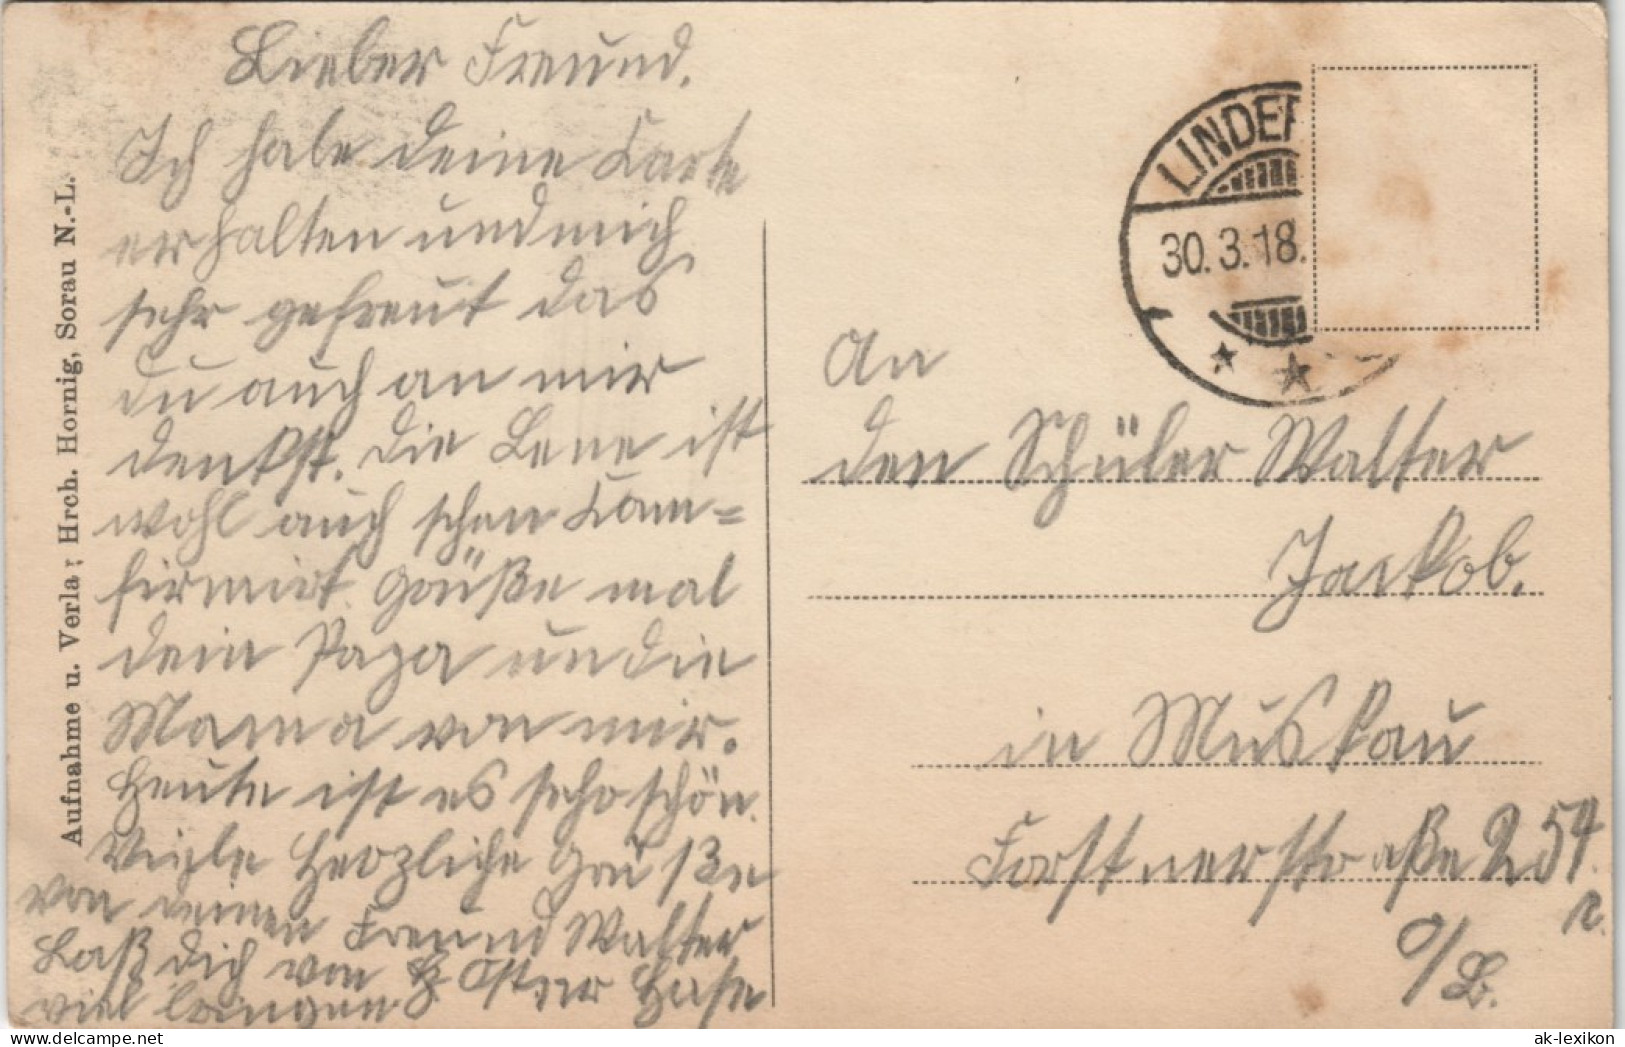 Lieber Freund.
Ich habe deine Karte
erhalten und mich
sehr gefreut das
du auch an mir
denkst. Die Lene ist
wohl auch schon Kom=
firmirt. Grüße mal
dein Papa und die
Mama von mir.
Heute ist es sehr schön.
Viele Herzliche Grüße
von deinen Freund Walter
Laß dich von Oster Hase
viel bringen
Aufnahme u. Verla; Hrch. Hornig, Sorau N.-L.
LINDER
30.3.18.
An
den Schüler Walter
Jackob.
in Muskau
Forstnerstraße 254
O/L.
ak-lexikon